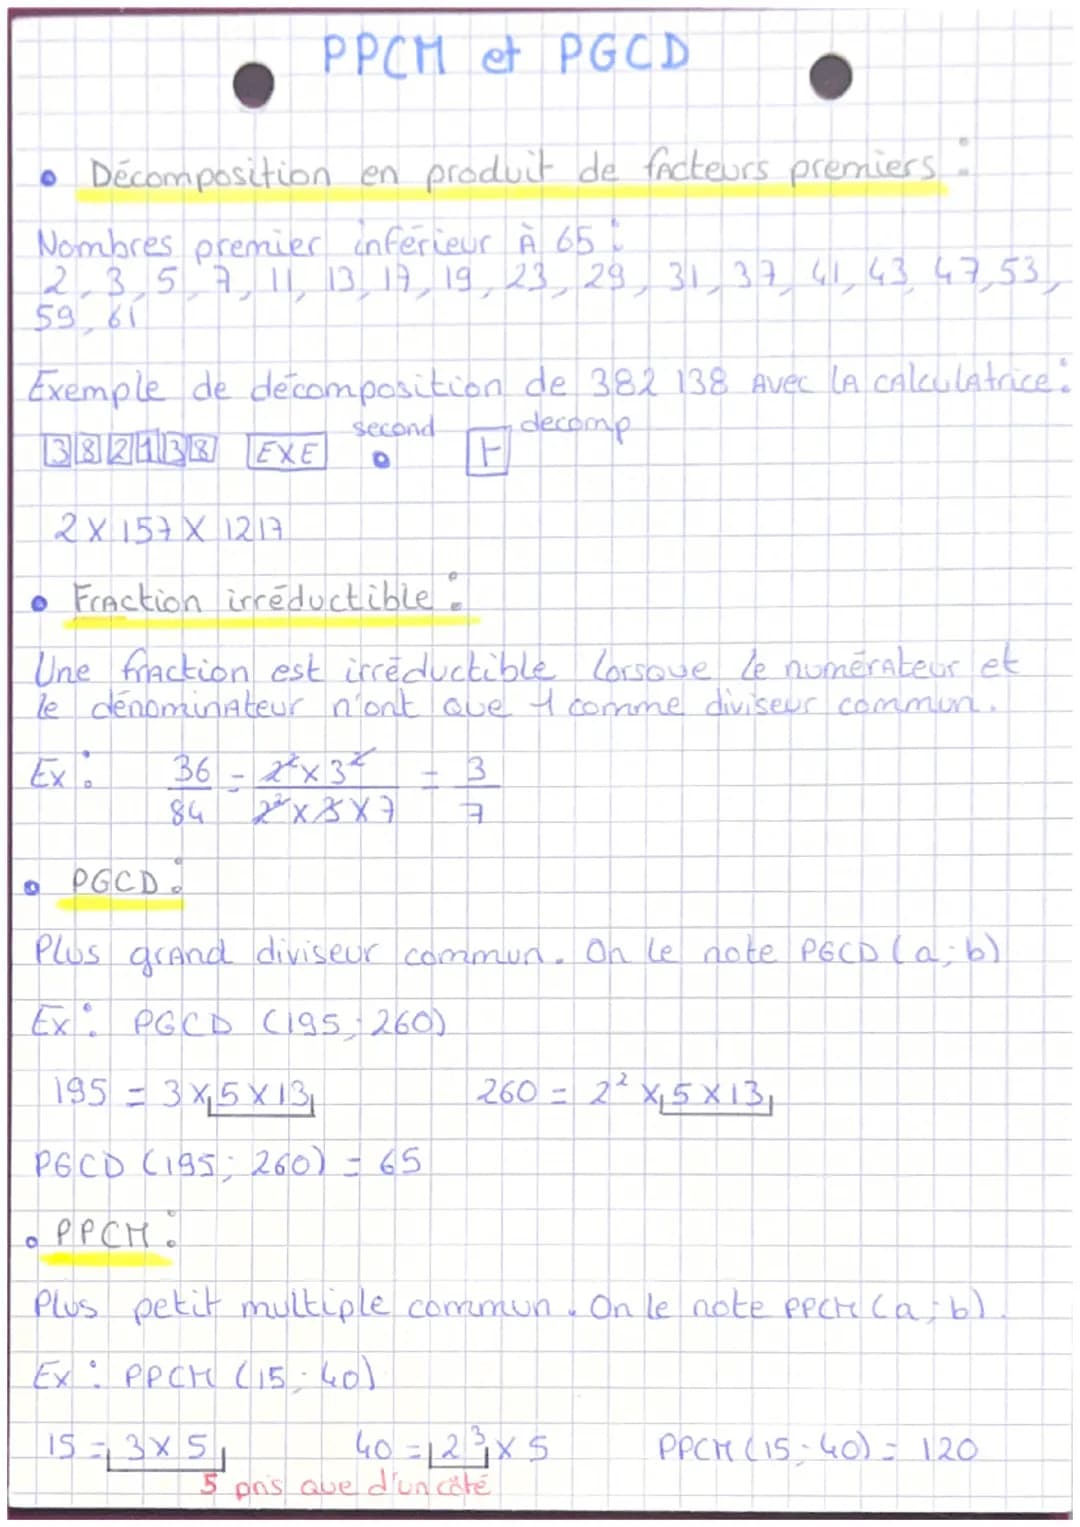 PPCM et PGCD
• Décomposition en produit de facteurs premiers :
Nombres premier inférieur à 65 :
2, 3, 5, 7, 11, 13, 17, 19, 23, 29, 31, 37, 41, 43, 47, 53,
59, 61
Exemple de décomposition de 382 138 avec la calculatrice :
second decomp
382138 EXE • F
2 × 157 × 1217
• Fraction irréductible :
Une fraction est irréductible lorsque le numérateur et
le dénominateur n'ont que 1 comme diviseur commun.
Ex : 36/84 = 2² × 3²/2² × 3 × 7 = 3/7
• PGCD :
Plus grand diviseur commun. On le note PGCD (a ; b)
Ex : PGCD (195 ; 260)
195 = 3 × 5 × 13 260 = 2² × 5 × 13
PGCD (195 ; 260) = 65
• PPCM :
Plus petit multiple commun. On le note PPCM (a ; b).
Ex : PPCM (15 ; 40)
15 = 3 × 5 40 = 2³ × 5 PPCM (15 ; 40) = 120
5 pris que d'un côté